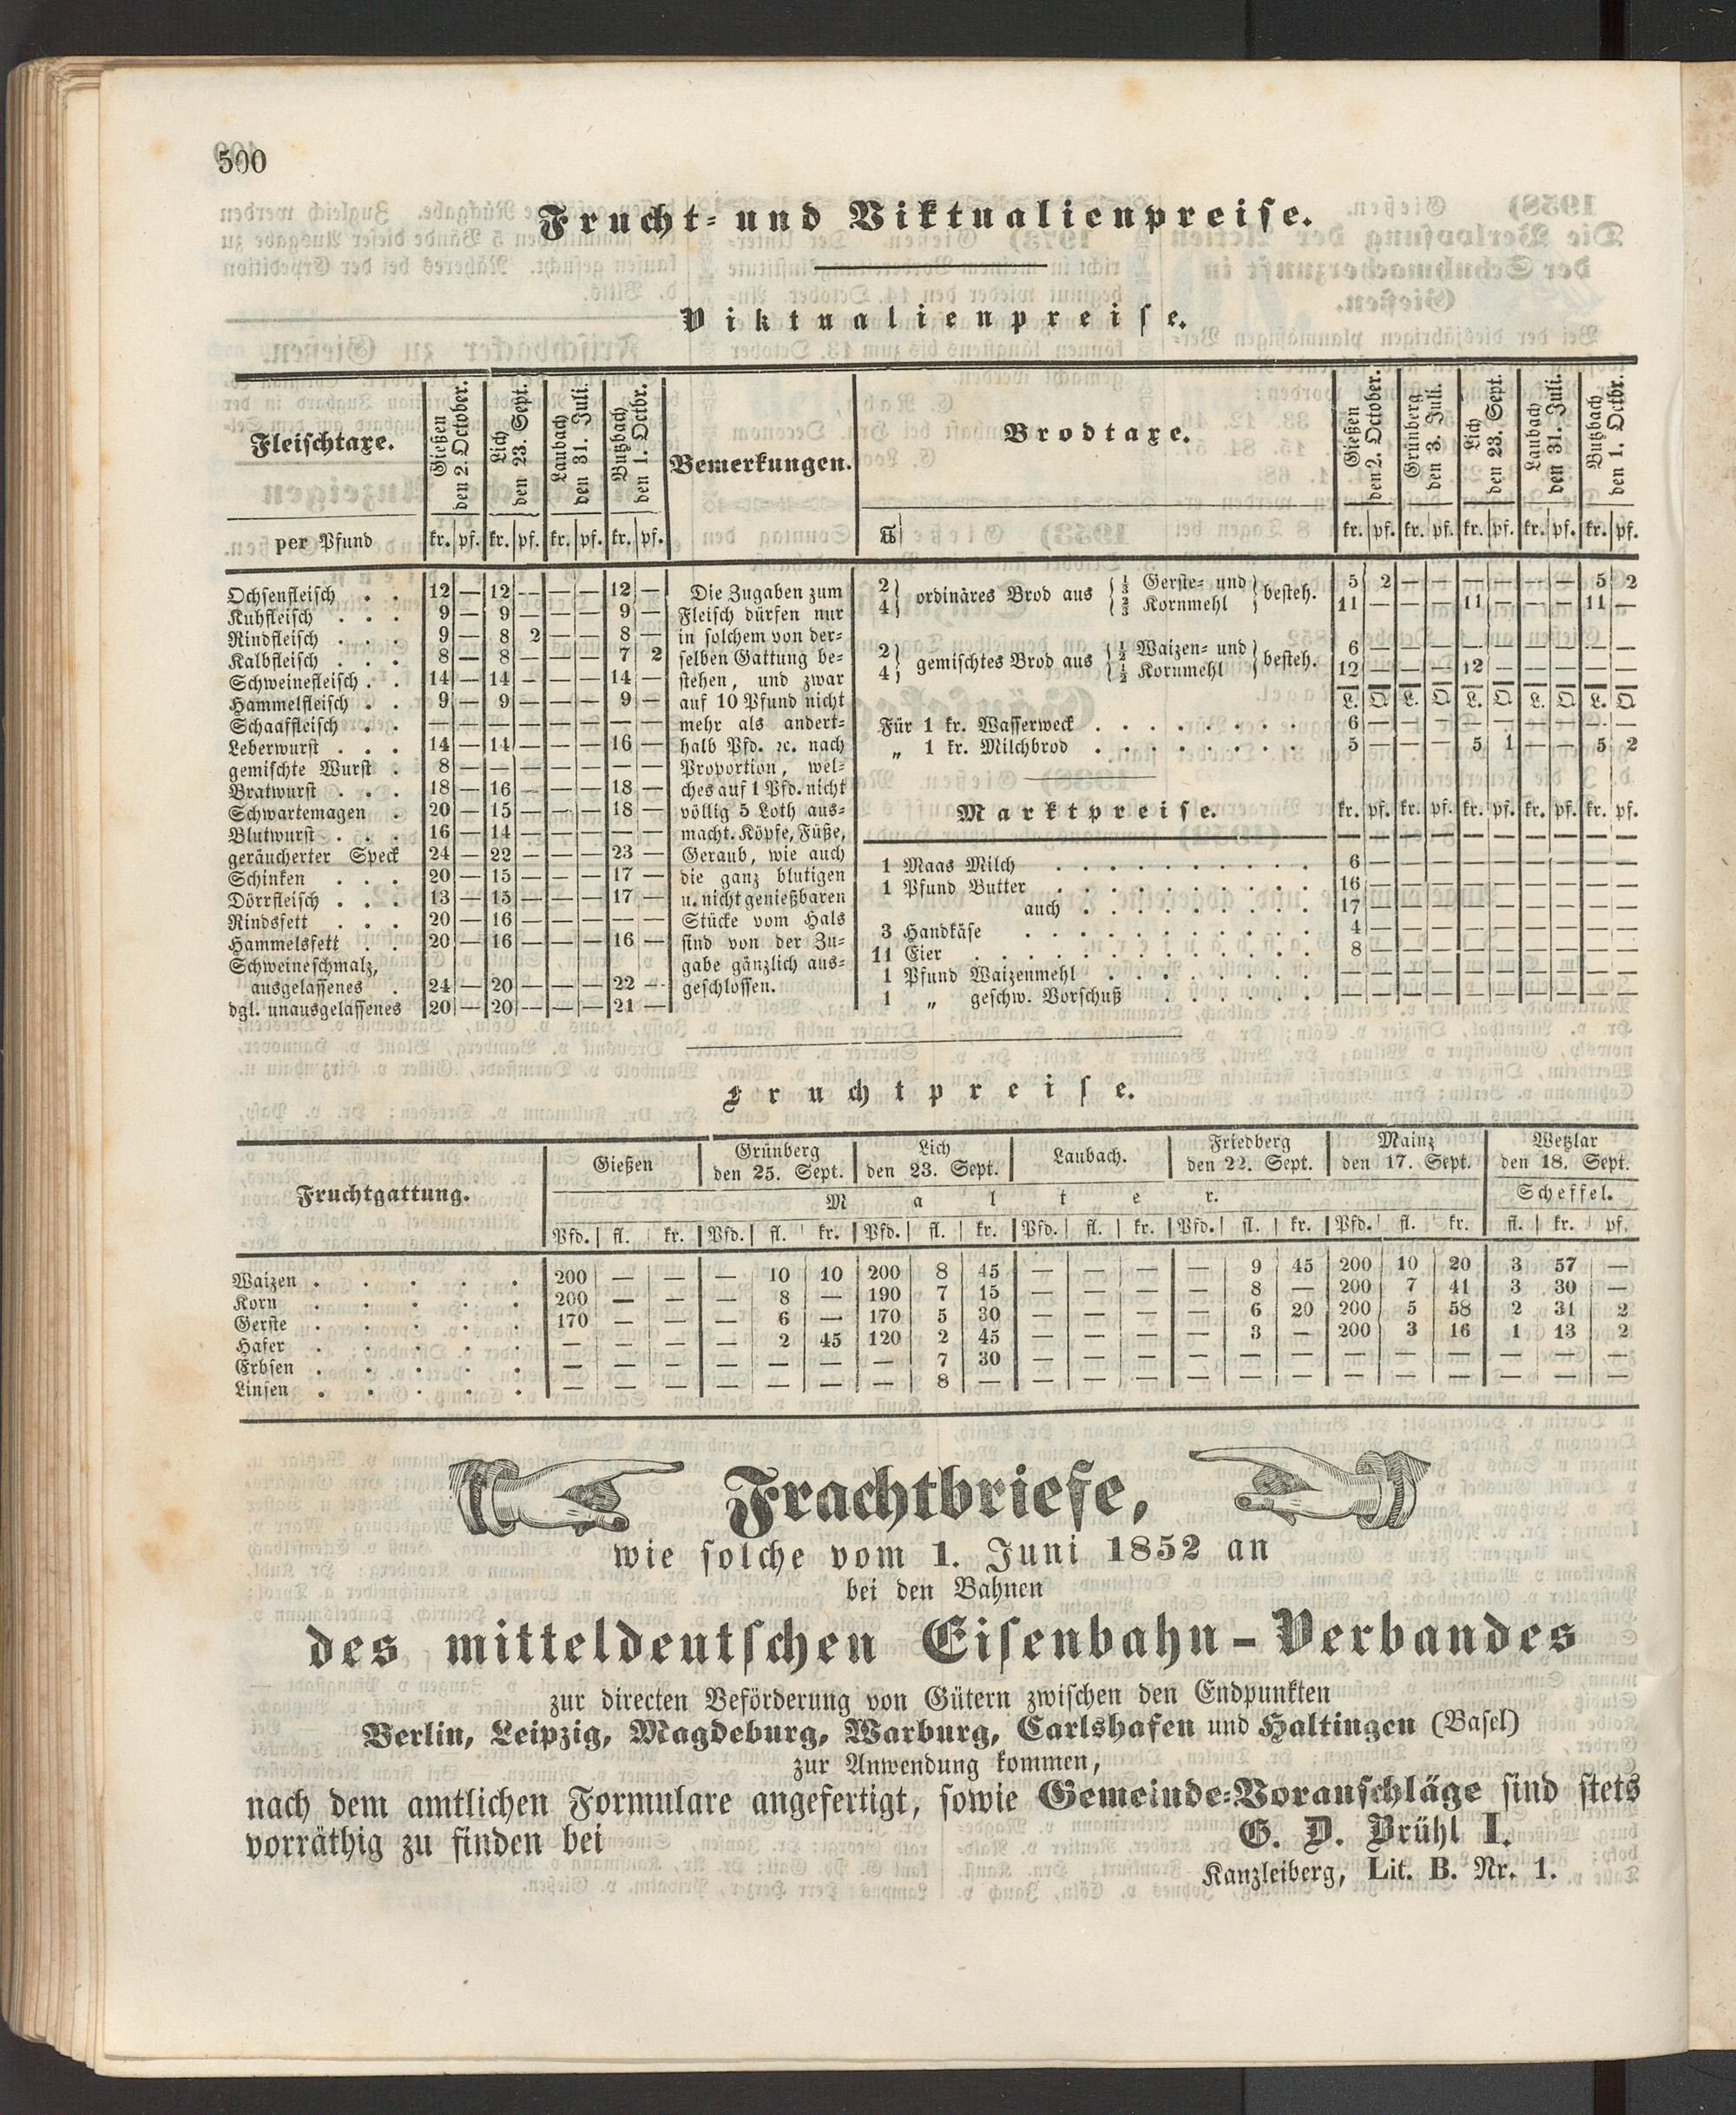 500
Frucht- und Viktualienpreise.
Viktualienpreise.
Fleischtaxe. Gießen den 2. October. Lich den 23. Sept. Laubach den 31. Juli. Butzbach den 1. Octbr. Bemerkungen.
per Pfund kr. pf. kr. pf. kr. pf. kr. pf.
Ochsenfleisch . . 12 — 12 — — — 12 —
Kuhfleisch . . . 9 — 9 — — — 9 —
Rindfleisch . . . 9 — 8 2 — — 8 —
Kalbfleisch . . . 8 — 8 — — — 7 2
Schweinefleisch . . 14 — 14 — — — 14 —
Hammelfleisch . . 9 — 9 — — — 9 —
Schaaffleisch . . — — — — — — — —
Leberwurst . . . 14 — 14 — — — 16 —
gemischte Wurst . 8 — — — — — — —
Bratwurst . . . 18 — 16 — — — 18 —
Schwartemagen . 20 — 15 — — — 18 —
Blutwurst . . . 16 — 14 — — — — —
geräucherter Speck 24 — 22 — — — 23 —
Schinken . . . 20 — 15 — — — 17 —
Dörrfleisch . . . 13 — 15 — — — 17 —
Rindsfett . . . 20 — 16 — — — — —
Hammelsfett . . 20 — 16 — — — 16 —
Schweineschmalz,
ausgelassenes . 24 — 20 — — — 22 —
dgl. unausgelassenes 20 — 20 — — — 21 —
Die Zugaben zum
Fleisch dürfen nur
in solchem von der-
selben Gattung be-
stehen, und zwar
auf 10 Pfund nicht
mehr als andert-
halb Pfd. ꝛc. nach
Proportion, wel-
ches auf 1 Pfd. nicht
völlig 5 Loth aus-
macht. Köpfe, Füße,
Geraub, wie auch
die ganz blutigen
u. nicht genießbaren
Stücke vom Hals
sind von der Zu-
gabe gänzlich aus-
geschlossen.
Brodtaxe. Gießen den 2. October. Grünberg den 3. Juli. Lich den 23. Sept. Laubach den 31. Juli. Butzbach den 1. Octbr.
℔ kr. pf. kr. pf. kr. pf. kr. pf. kr. pf.
2 } ordinäres Brod aus { ⅓ Gerste- und } besteh. 5 2 — — — — — — 5 2
4 } { ⅔ Kornmehl } 11 — — — 11 — — — 11 —
2 } gemischtes Brod aus { ½ Waizen- und } besteh. 6 — — — — — — — — —
4 } { ½ Kornmehl } 12 — — — 12 — — — — —
L. Q. L. Q. L. Q. L. Q. L. Q.
Für 1 kr. Wasserweck . . . . . . . . 6 — — — — — — — — —
„ 1 kr. Milchbrod . . . . . . . . 5 — — — 5 1 — — 5 2
Marktpreise. kr. pf. kr. pf. kr. pf. kr. pf. kr. pf.
1 Maas Milch . . . . . . . . . . 6 — — — — — — — — —
1 Pfund Butter . . . . . . . . . . 16 — — — — — — — — —
auch . . . . . . . . . 17 — — — — — — — — —
3 Handkäse . . . . . . . . . . . 4 — — — — — — — — —
11 Eier . . . . . . . . . . . . . 8 — — — — — — — — —
1 Pfund Waizenmehl . . . . . . . . — — — — — — — — — —
1 „ geschw. Vorschuß . . . . . . — — — — — — — — — —
Fruchtpreise.
Fruchtgattung. Gießen Grünberg den 25. Sept. Lich den 23. Sept. Laubach. Friedberg den 22. Sept. Mainz den 17. Sept. Wetzlar den 18. Sept.
Malter. Scheffel.
Pfd. fl. kr. Pfd. fl. kr. Pfd. fl. kr. Pfd. fl. kr. Pfd. fl. kr. Pfd. fl. kr. fl. kr. pf.
Waizen . . . . . 200 — — — 10 10 200 8 45 — — — — 9 45 200 10 20 3 57 —
Korn . . . . . 200 — — — 8 — 190 7 15 — — — — 8 — 200 7 41 3 30 —
Gerste . . . . . 170 — — — 6 — 170 5 30 — — — — 6 20 200 5 58 2 31 2
Hafer . . . . . — — — — 2 45 120 2 45 — — — — 3 — 200 3 16 1 13 2
Erbsen . . . . . — — — — — — — 7 30 — — — — — — — — — — — —
Linsen . . . . . — — — — — — — 8 — — — — — — — — — — — — —
Frachtbriefe,
wie solche vom 1. Juni 1852 an
bei den Bahnen
des mitteldeutschen Eisenbahn-Verbandes
zur directen Beförderung von Gütern zwischen den Endpunkten
Berlin, Leipzig, Magdeburg, Warburg, Carlshafen und Haltingen (Basel)
zur Anwendung kommen,
nach dem amtlichen Formulare angefertigt, sowie Gemeinde-Voranschläge sind stets
vorräthig zu finden bei G. D. Brühl I.
Kanzleiberg, Lit. B. Nr. 1.